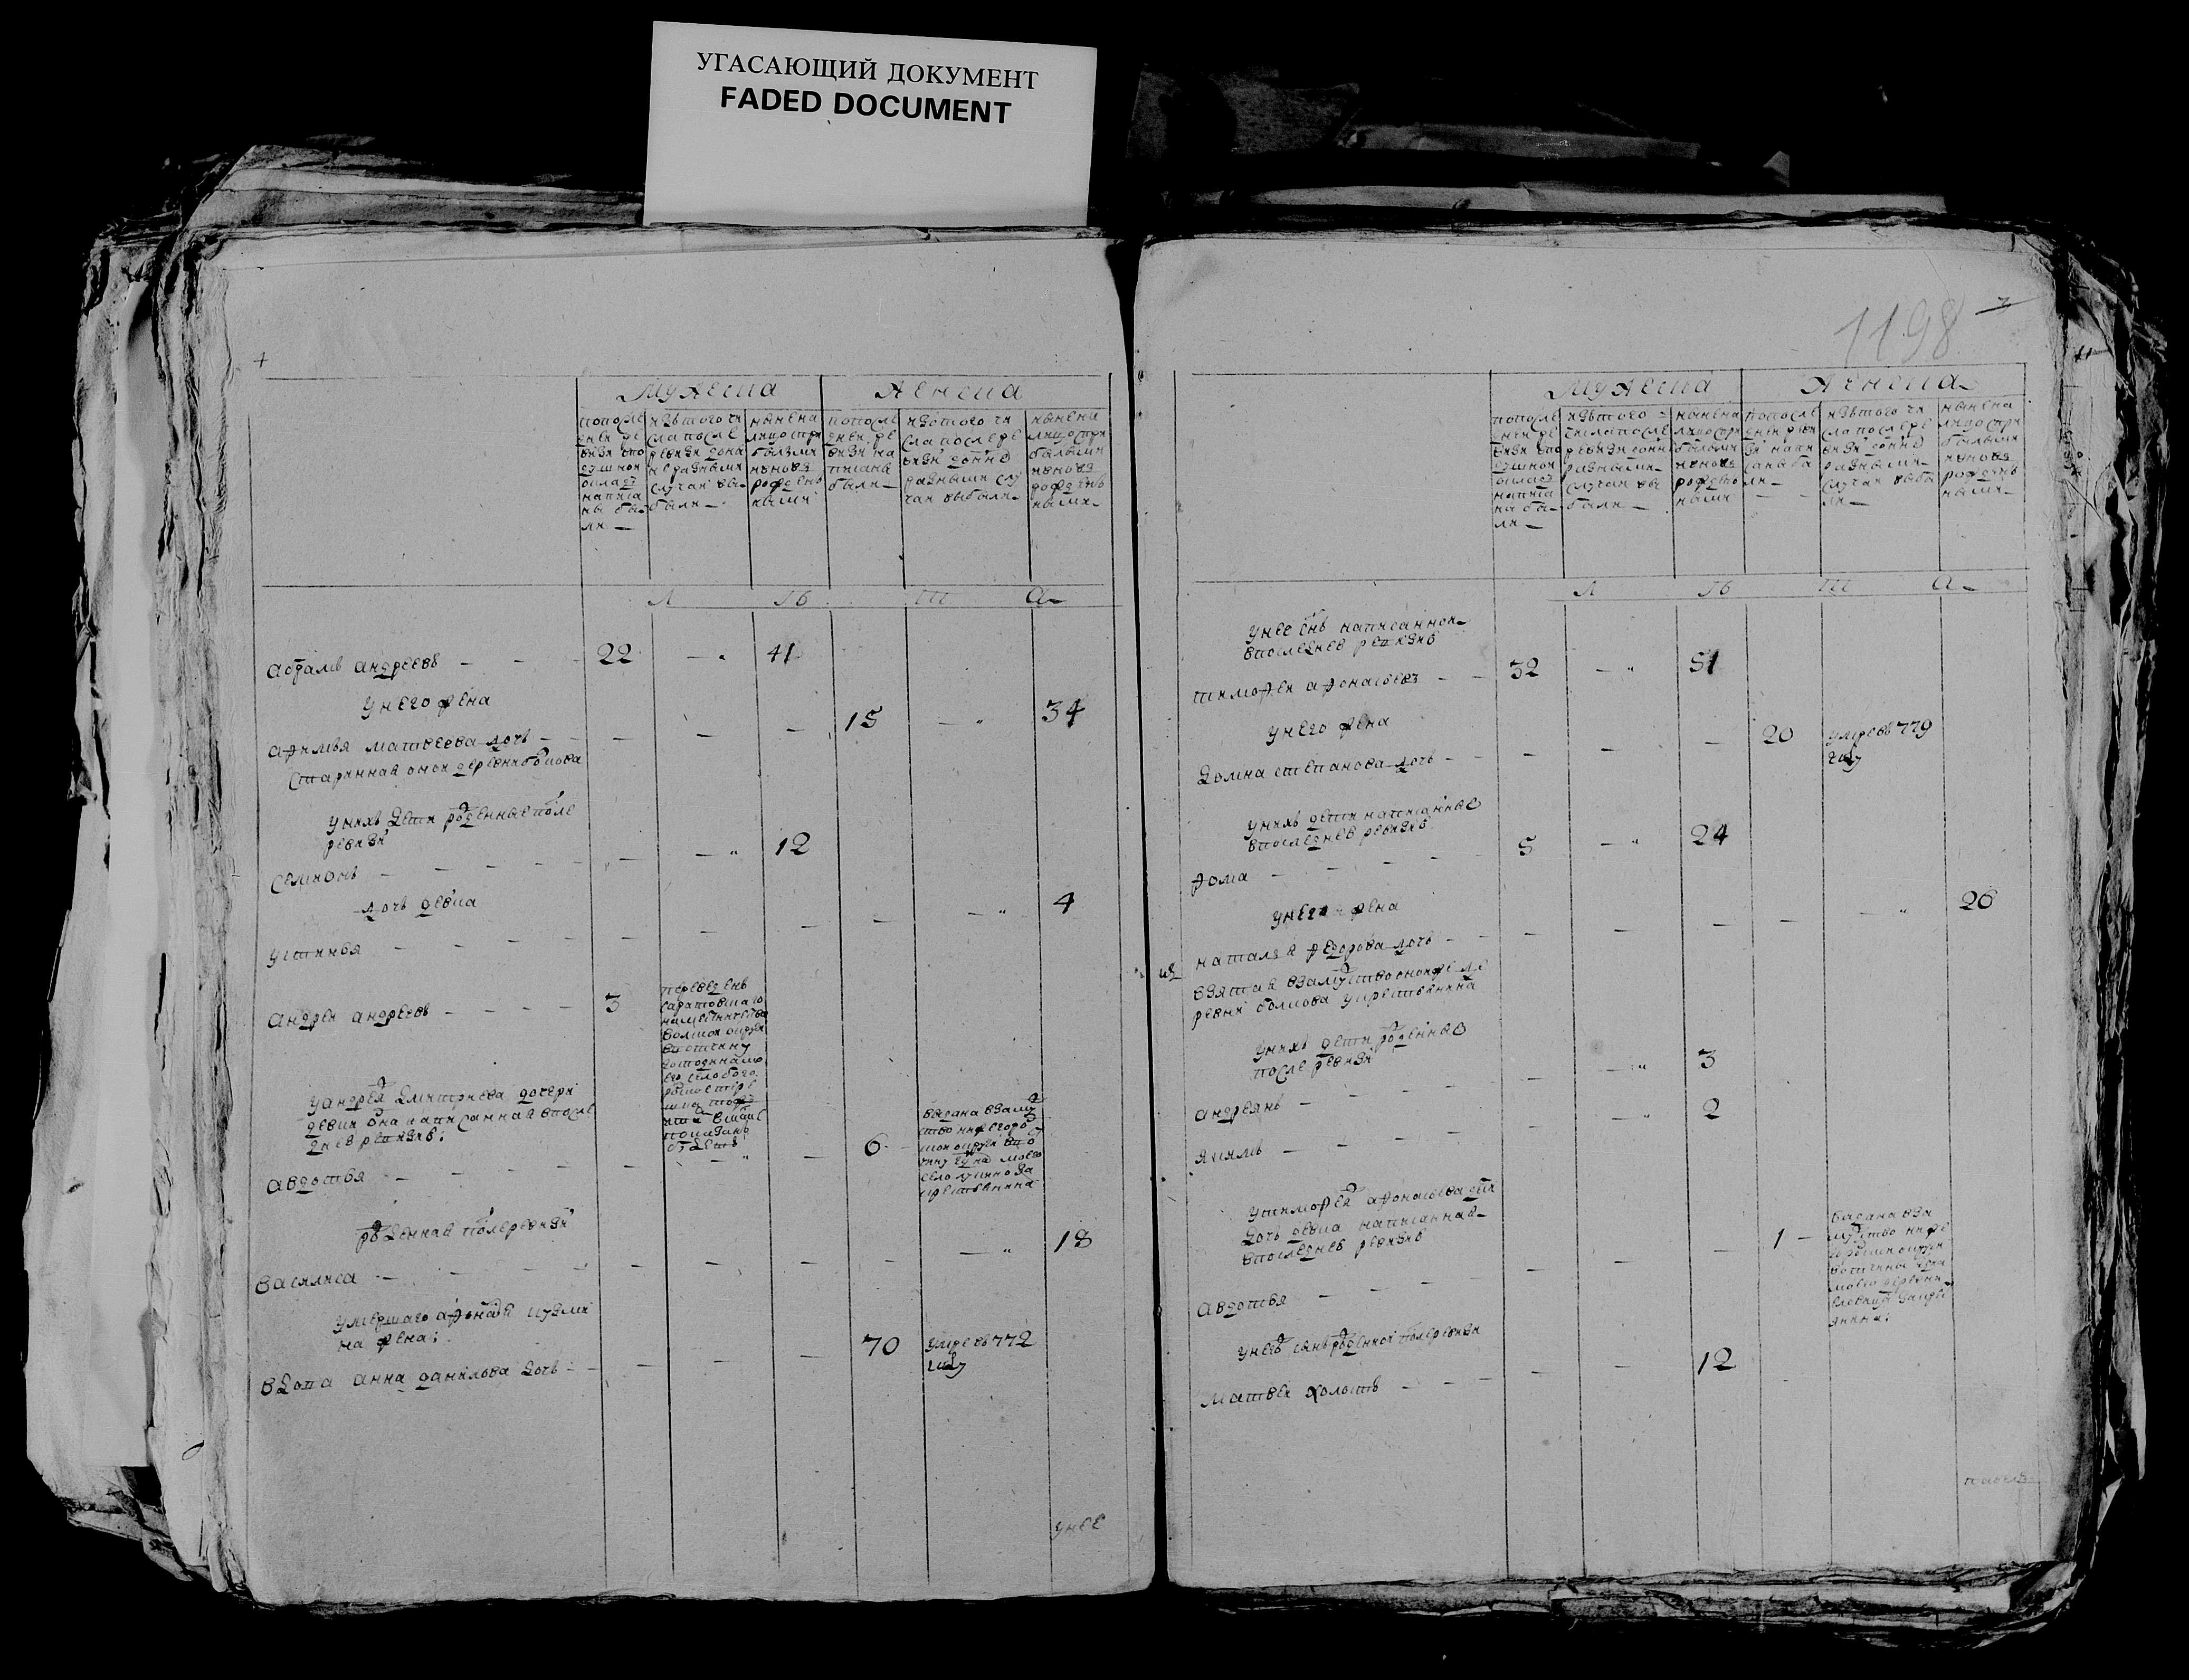 УГАСАЮЩИЙ ДОКУМЕНТ
FADED DOCUMENT
мужеска
женска
попосле
дней ре
визи впо
душной
окладъ
написа
ны бы-
ли
изътого чи
сла после
ревизи
разными
случаи вы-
были
ныне на
лицо спри
былыми
ивновь
рожден
ными
попосле
дней ре
визи на
писаны
были
изътого чи
сла послере
визи
разными слу
чаи выбыли
ныне на
лицо спри
былыми
ивновь
рожден
ными
л ѣ т а
абрамъ андреевъ 22 41
унего жена
афимья матвеева дочь 15 34
старинная оной деревни
унихъ дети рожденные после
ревизи
семионъ 12
дочь девка
устинья 4
андрей андреевъ 3
переведенъ
саратовскаго
наместничества
вотчину
село
показано
ундрея дмитриева дочери
девки она написанная впосле
дней ревизиѣ:
авдотья 6
выдана взаму
жство нижегоро
цкой округи вво
чину моево
село
крестьянина
рожденная после ревизи
василиса 18
умершаго афонасья кузми
на жена:
вдова анна данилова дочь 70
умре въ 772
году
унее
1198
мужеска
женска
попосле
дней ре
визи впо
душной
окладъ
написа
ны бы-
ли
изътого
числа после
ревизи
разными
случаи вы
были
ныне на
лицо спри
былыми
ивновь
рожден
ными
попосле
дней реви
зи напи
саны бы
ли
изътого чи
сла после ре
визи
разными
случаи выбы
ли
ныне на
лицо спри
былыми
ивновь
рожден
ными
л ѣ т а
унее сынъ написанной
впоследней ревизиѣ
тимофей афонасьевъ 32 51
унего жена
домна степанова дочь 20
умре въ 779
году
унихъ дети написанные
впоследней ревизиѣ
фома 5 24
унего жена
наталья федорова дочь 26
взятая взамужство оной же де
ревни крестьянина
унихъ дети рожденные
после ревизи
андреянъ 3
якимъ 2
утимофея афонасьева
дочь девка написанная
впоследней ревизиѣ
авдотья 1
выдана вза
мужство ниже
городцкой округи
вотчины
моево деревни
унего сынъ рожденной после ревизи
матвей холостъ 12